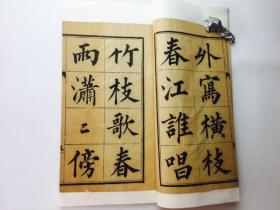 外寫橫枝
春江誰唱
竹枝歌春
雨瀟二傍